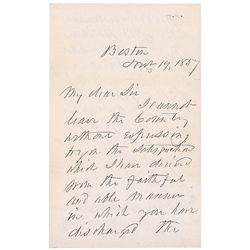 Boston
19, 1857
My dear Sir
I cannot
leave the Country
without expressing
to you the satisfaction
which I have derived
from the faithful
and able manner
in which you have
discharged the